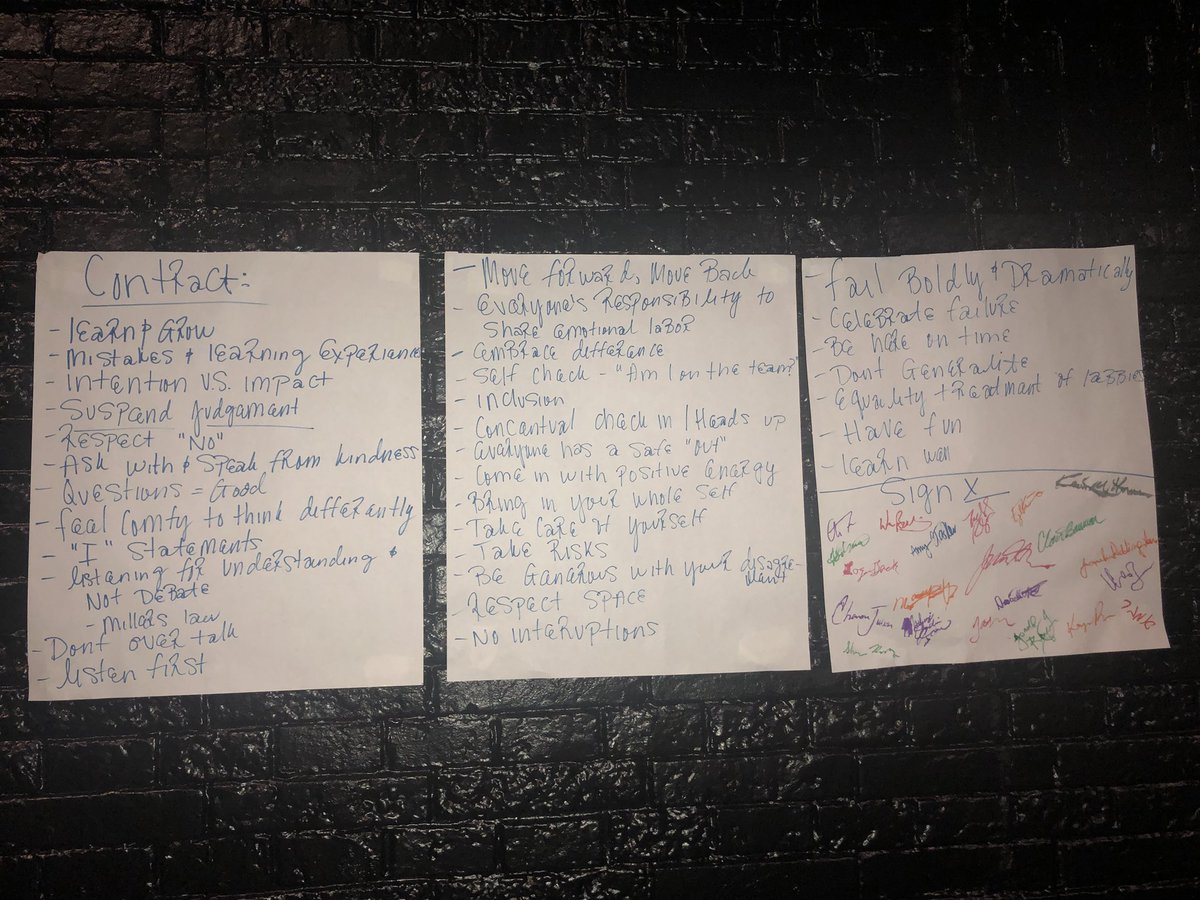 Contract:
- learn & Grow
- Mistakes & learning Experience
- Intention V.S. Impact
- Suspend Judgament
- Respect "No"
- Ask with & speak from kindness
- Questions = Good
- feel comfy to think differently
- "I" Statements
- listening for understanding &
Not Debate
- Millers law
- Dont over talk
- listen first
- Move forward, Move Back
- Everyone's Responsibility to
Share emotional labor
- embrace difference
- Self check - "Am I on the team?"
- Inclusion
- Concentual check in / Heads up
- Everyone has a safe "out"
- Come in with positive energy
- Bring in your whole self
- Take care of yourself
- Take Risks
- Be Generous with your disagree-
ment
- Respect Space
- No Interuptions
- fail Boldly & Dramatically
- Celebrate failure
- Be here on time
- Dont Generalize
- Equality treadmant of labbies
- Have fun
- learn well
Sign X